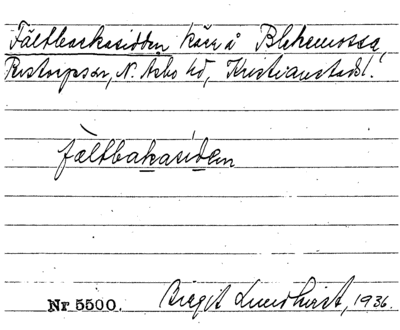 Fältbackasidden kärr å Blekemossa,
Perstorps sn, N. Åsbo hd, Kristianstads l.
fältbakasiden
Nr 5500. Birgit Lundkvist, 1936.